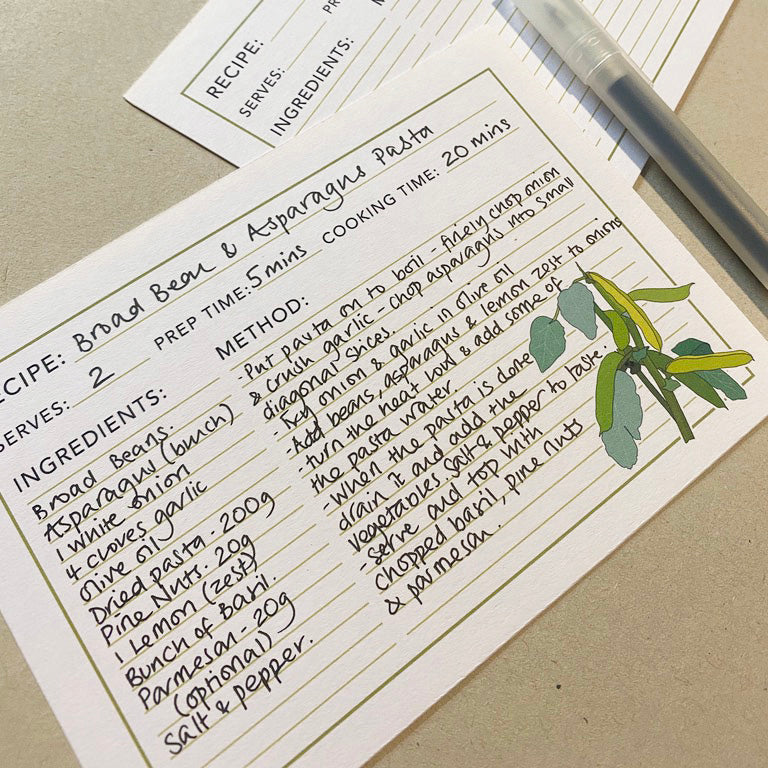 RECIPE:
PR
SERVES:
INGREDIENTS:
RECIPE: Broad Bean & Asparagus Pasta
SERVES: 2 PREP TIME: 5 mins COOKING TIME: 20 mins
INGREDIENTS:
Broad Beans.
Asparagus (bunch)
1 white onion
4 cloves garlic
Olive oil
Dried pasta - 200g
Pine Nuts. 20g
1 Lemon (zest)
Bunch of Basil.
Parmesan - 20g
(optional)
Salt & pepper.
METHOD:
- Put pasta on to boil - finely chop onion
& crush garlic - chop asparagus into small
diagonal slices.
- Fry onion & garlic in olive oil
- Add beans, asparagus & lemon zest to onions
- turn the heat low & add some of
the pasta water
- When the pasta is done
drain it and add the
vegetables. Salt & pepper to taste.
- Serve and top with
chopped basil, pine nuts
& parmesan.